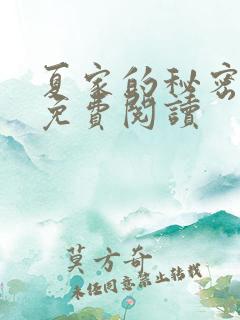 夏家的秘密
免費閱讀
莫方奇
未经同意禁止转载